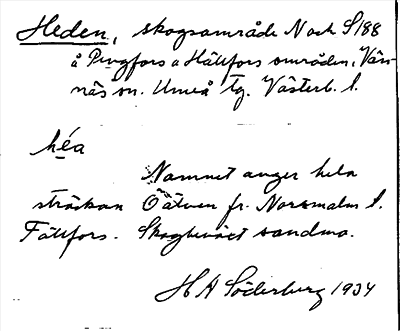 Heden, skogsområde N och S 188
å Pengfors o Hällfors områden, Vän-
näs sn. Umeå tg. Västerb. l.
héa
Namnet anger hela
sträckan Ö älven fr. Norrmalm t.
Fällfors. Skogbeväxt sandmo.
H A Söderberg 1934